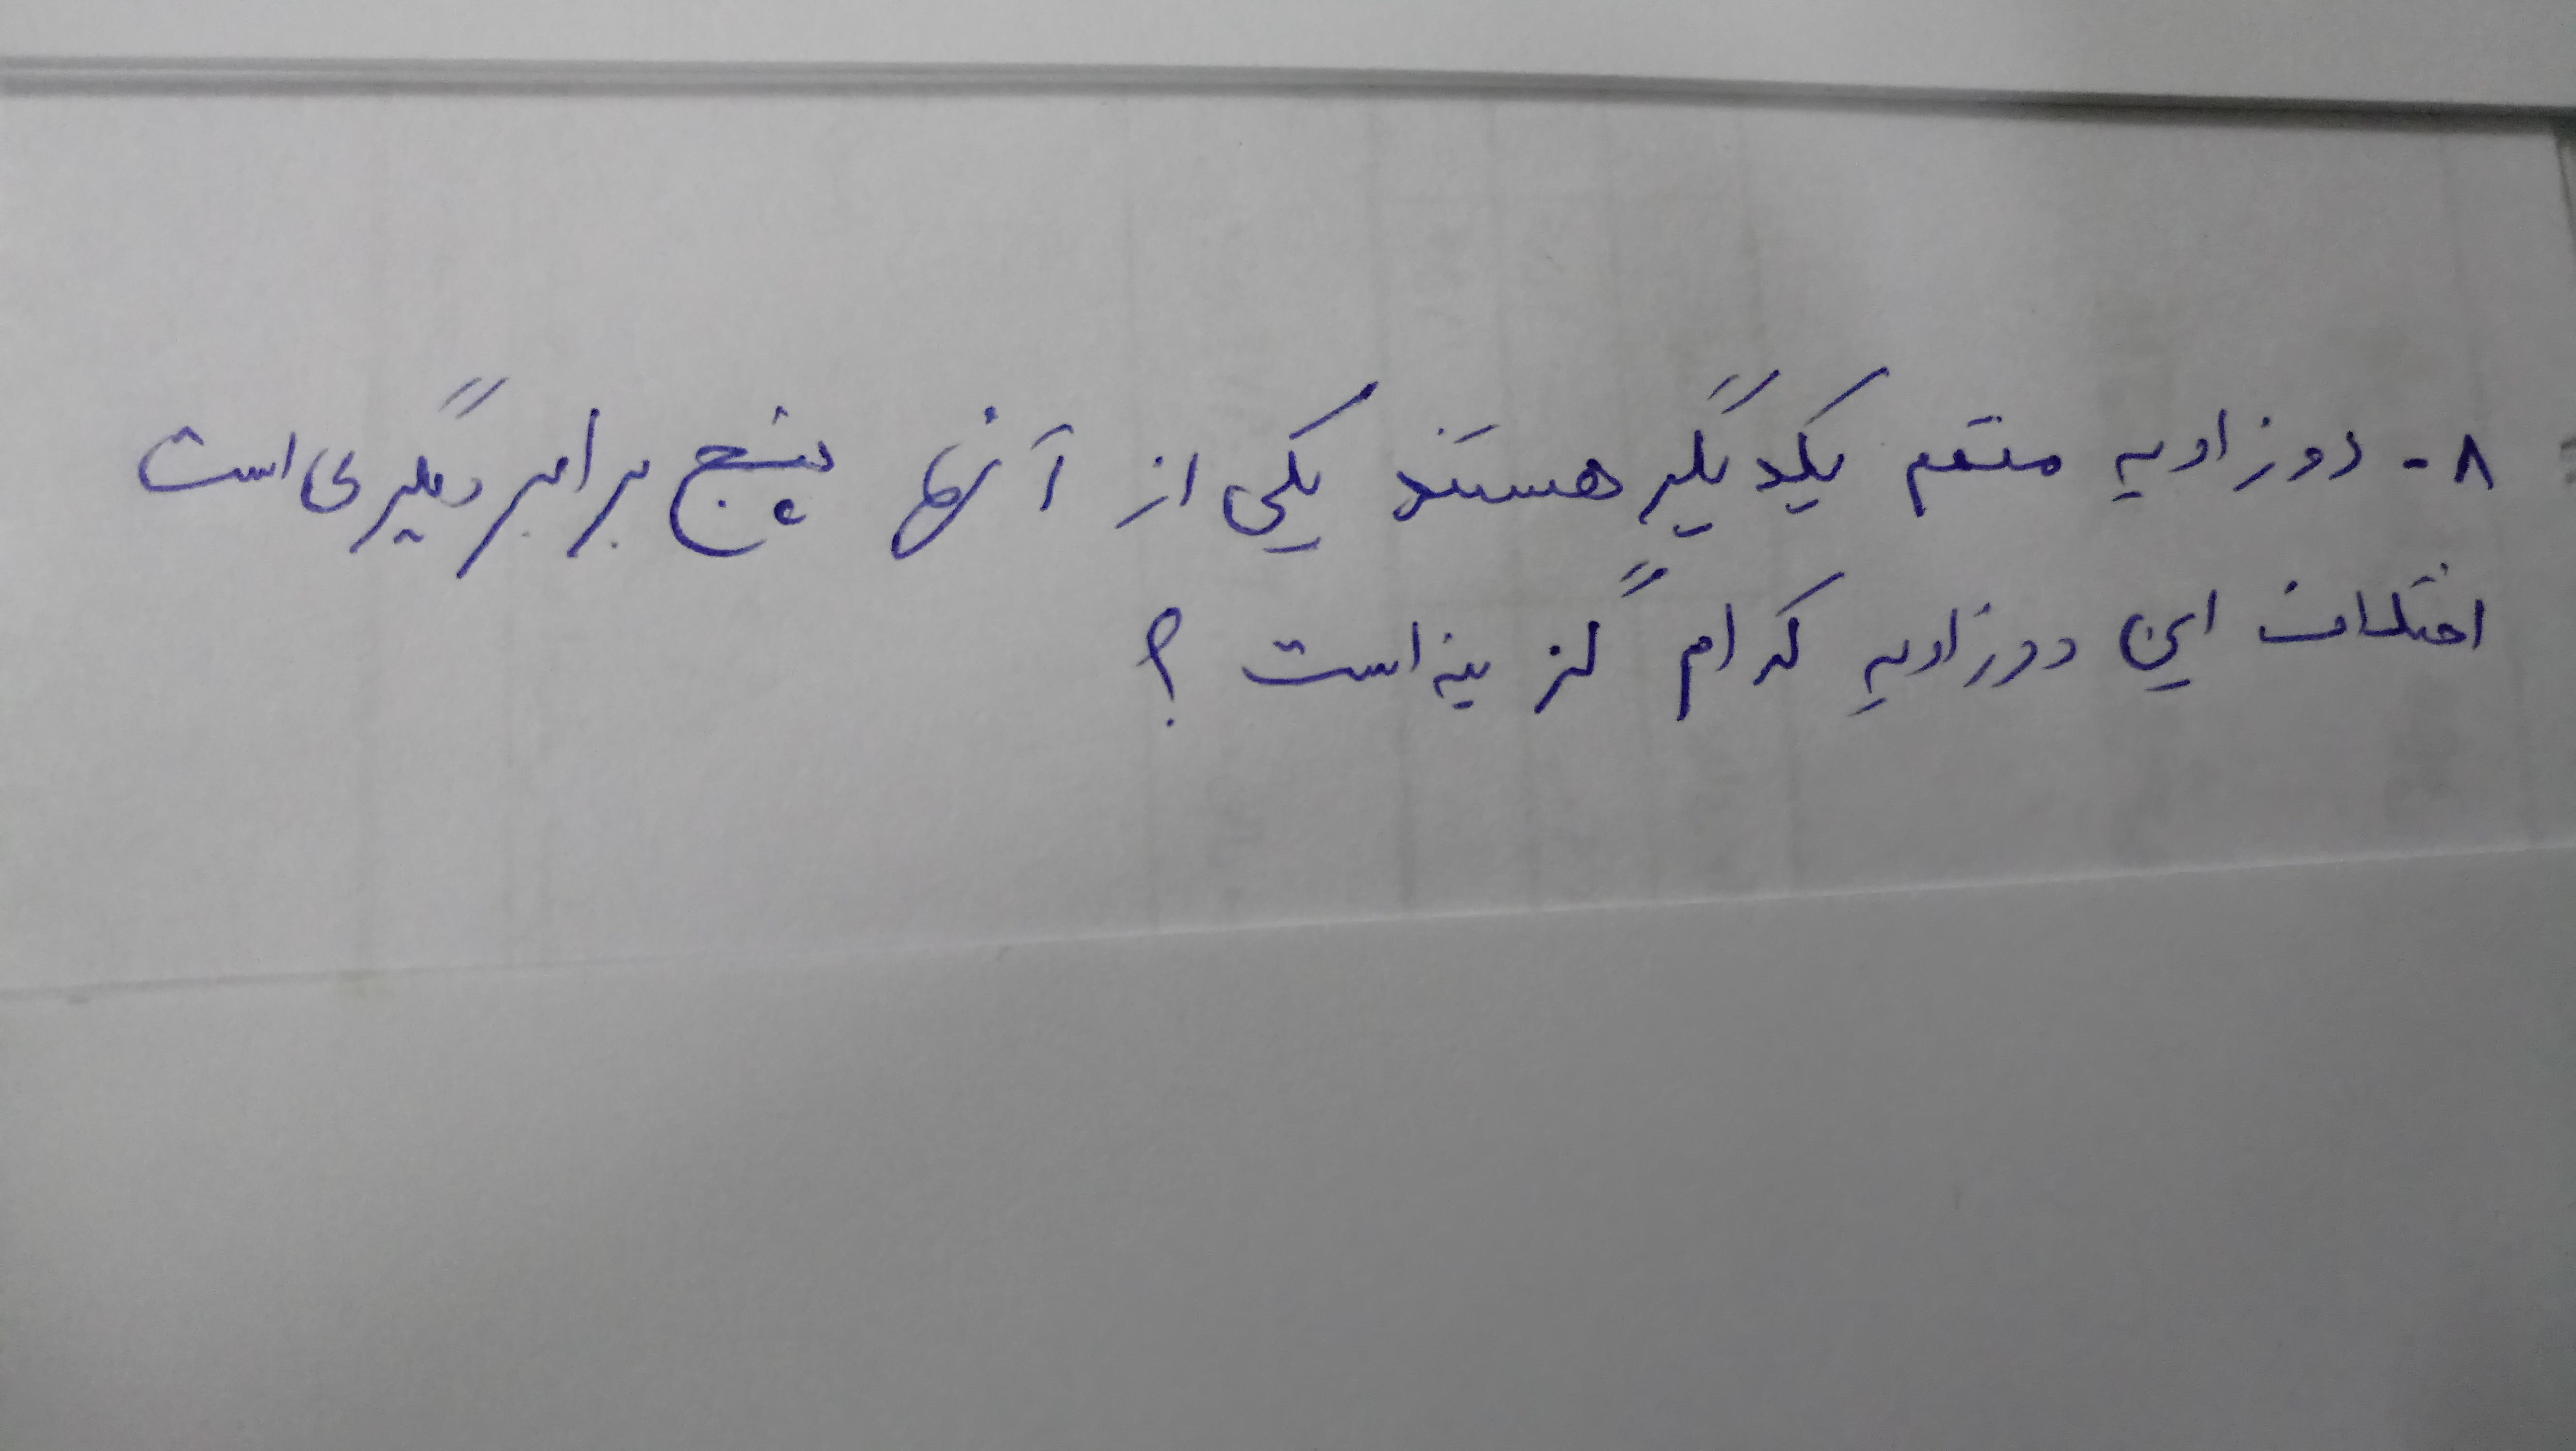 ۸- دو زاویه متمم یکدیگر هستند یکی از آنها پنج برابر دیگری است
اختلاف این دو زاویه کدام گزینه است ؟